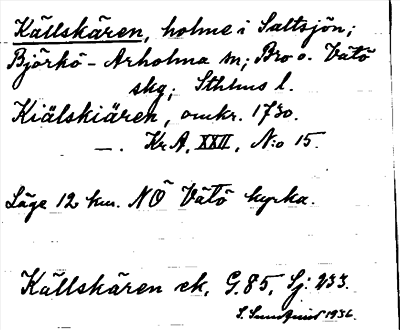 Källskären, holme i Saltsjön;
Björkö-Arholma sn; Bro o. Vätö
skg; Sthlms l.
Kiälskiären, omkr. 1730.
—. Kr.A. XXII, N:o 15.
Läge 12 km. NÖ Vätö kyrka.
Källskären ek. G. 85, Sj: 233.
1936.